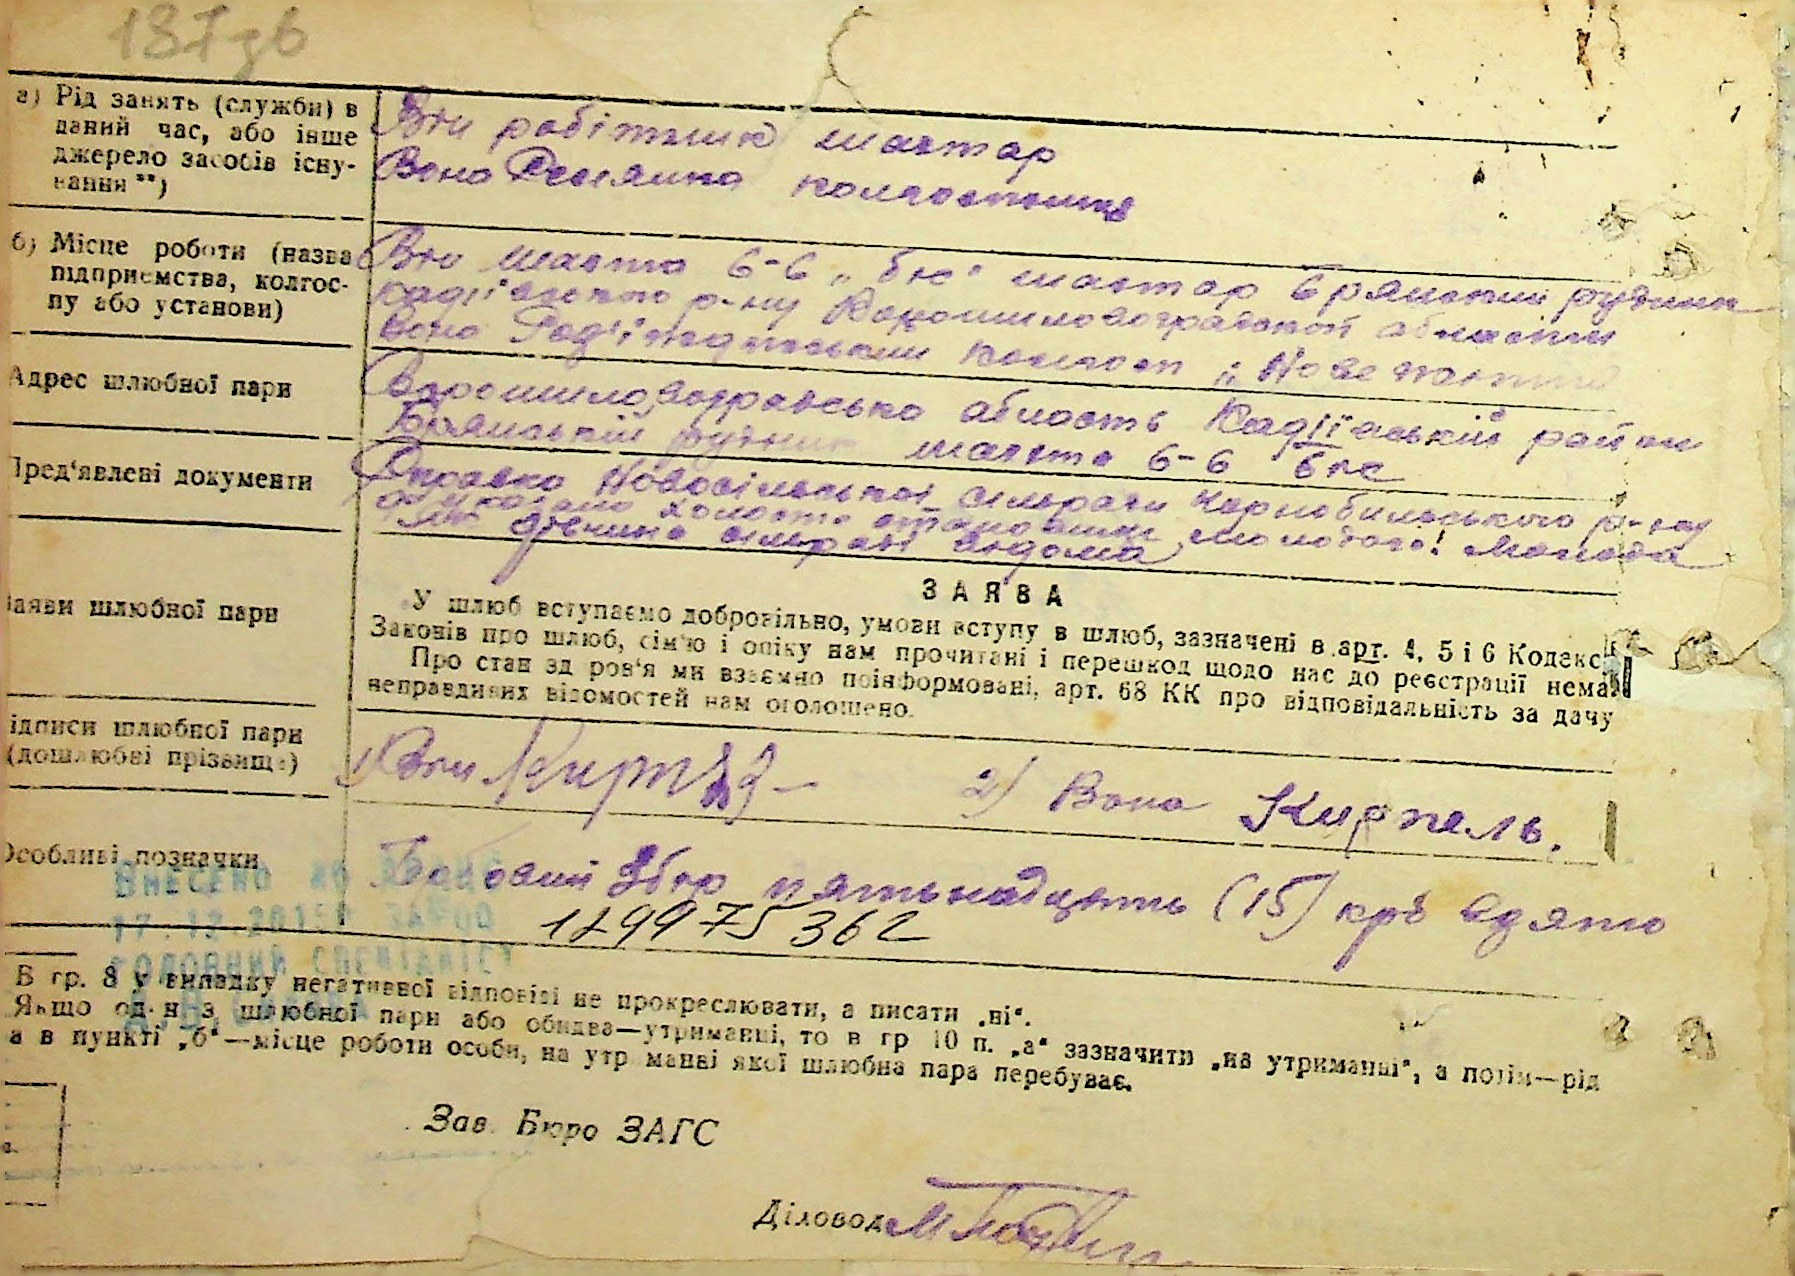 187зв
а) Рід занять (служби) в
даний час, або інше
джерело засобів існу-
вання **)
Він робітник шахтар
Вона Селянка колгоспниця
б) Місце роботи (назва
підприємства, колгос-
пу або установи)
Він шахта 6-6 „біс" шахтар Брянський рудник
Кадіївського р-ну Ворошиловградської області
Вона колгосп „Нове життя
Адрес шлюбної пари
Ворошиловградська область Кадіївський район
Брянський рудник шахта 6-6 біс
Пред'явлені документи
Справка Новосільської сільради Чорнобильського р-ну
молодого! Молода
сільраді відома
Заяви шлюбної пари
ЗАЯВА
У шлюб вступаємо добровільно, умови вступу в шлюб, зазначені в арт. 4, 5 і 6 Кодексу
Законів про шлюб, сім'ю і опіку нам прочитані і перешкод щодо нас до реєстрації нема.
Про стан здоров'я ми взаємно поінформовані, арт. 68 КК про відповідальність за дачу
неправдивих відомостей нам оголошено.
ідписи шлюбної пари
(дошлюбні прізвища)
1) Він 2) Вона Кирпель.
Особливі позначки
збір пятьнадцять (15) крб взято
129975362
ВНЕСЕНО ДО
17.12.2015р.
ГОЛОВНИЙ СПЕЦІАЛІСТ
В гр. 8 у випадку негативної відповіді не прокреслювати, а писати „ні".
Якщо один з шлюбної пари або обидва—утриманці, то в гр 10 п. „а" зазначити „на утриманні", а потім—рід
а в пункті „б"—місце роботи особи, на утриманні якої шлюбна пара перебуває.
Зав. Бюро ЗАГС
Діловод